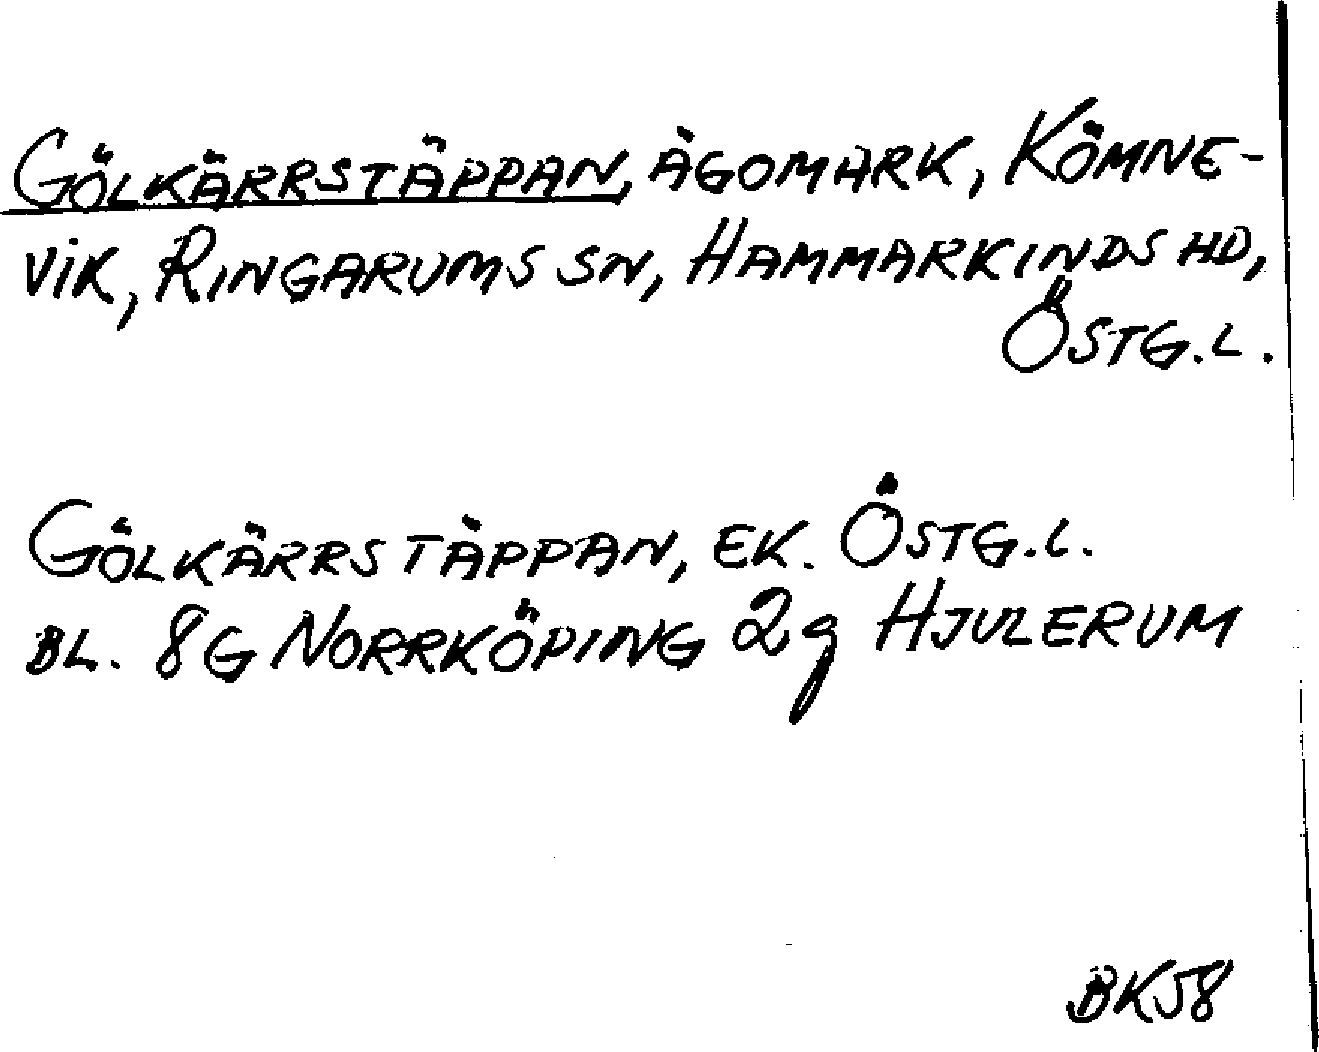 GÖLKÄRRSTÄPPAN, ÄGOMARK, KÖMNE-
VIK, RINGARUMS SN, HAMMARKINDS HD,
ÖSTG.L.
GÖLKÄRRSTÄPPAN, EK. ÖSTG.L.
BL. 8G NORRKÖPING 2g HJULERUM
BK58